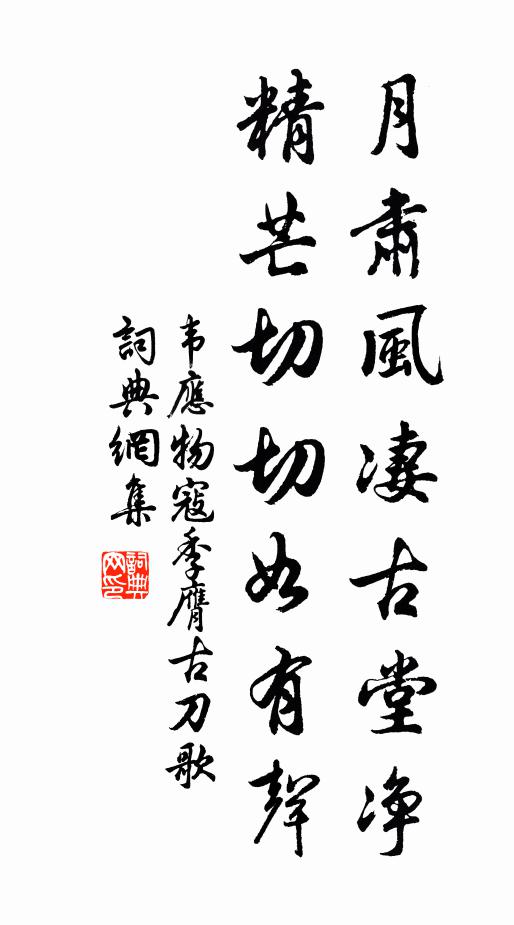 月肅風凄古堂净
精芒切切如有聲
韦應物寇季膺古刀歌
詞典網集
詞典
网印